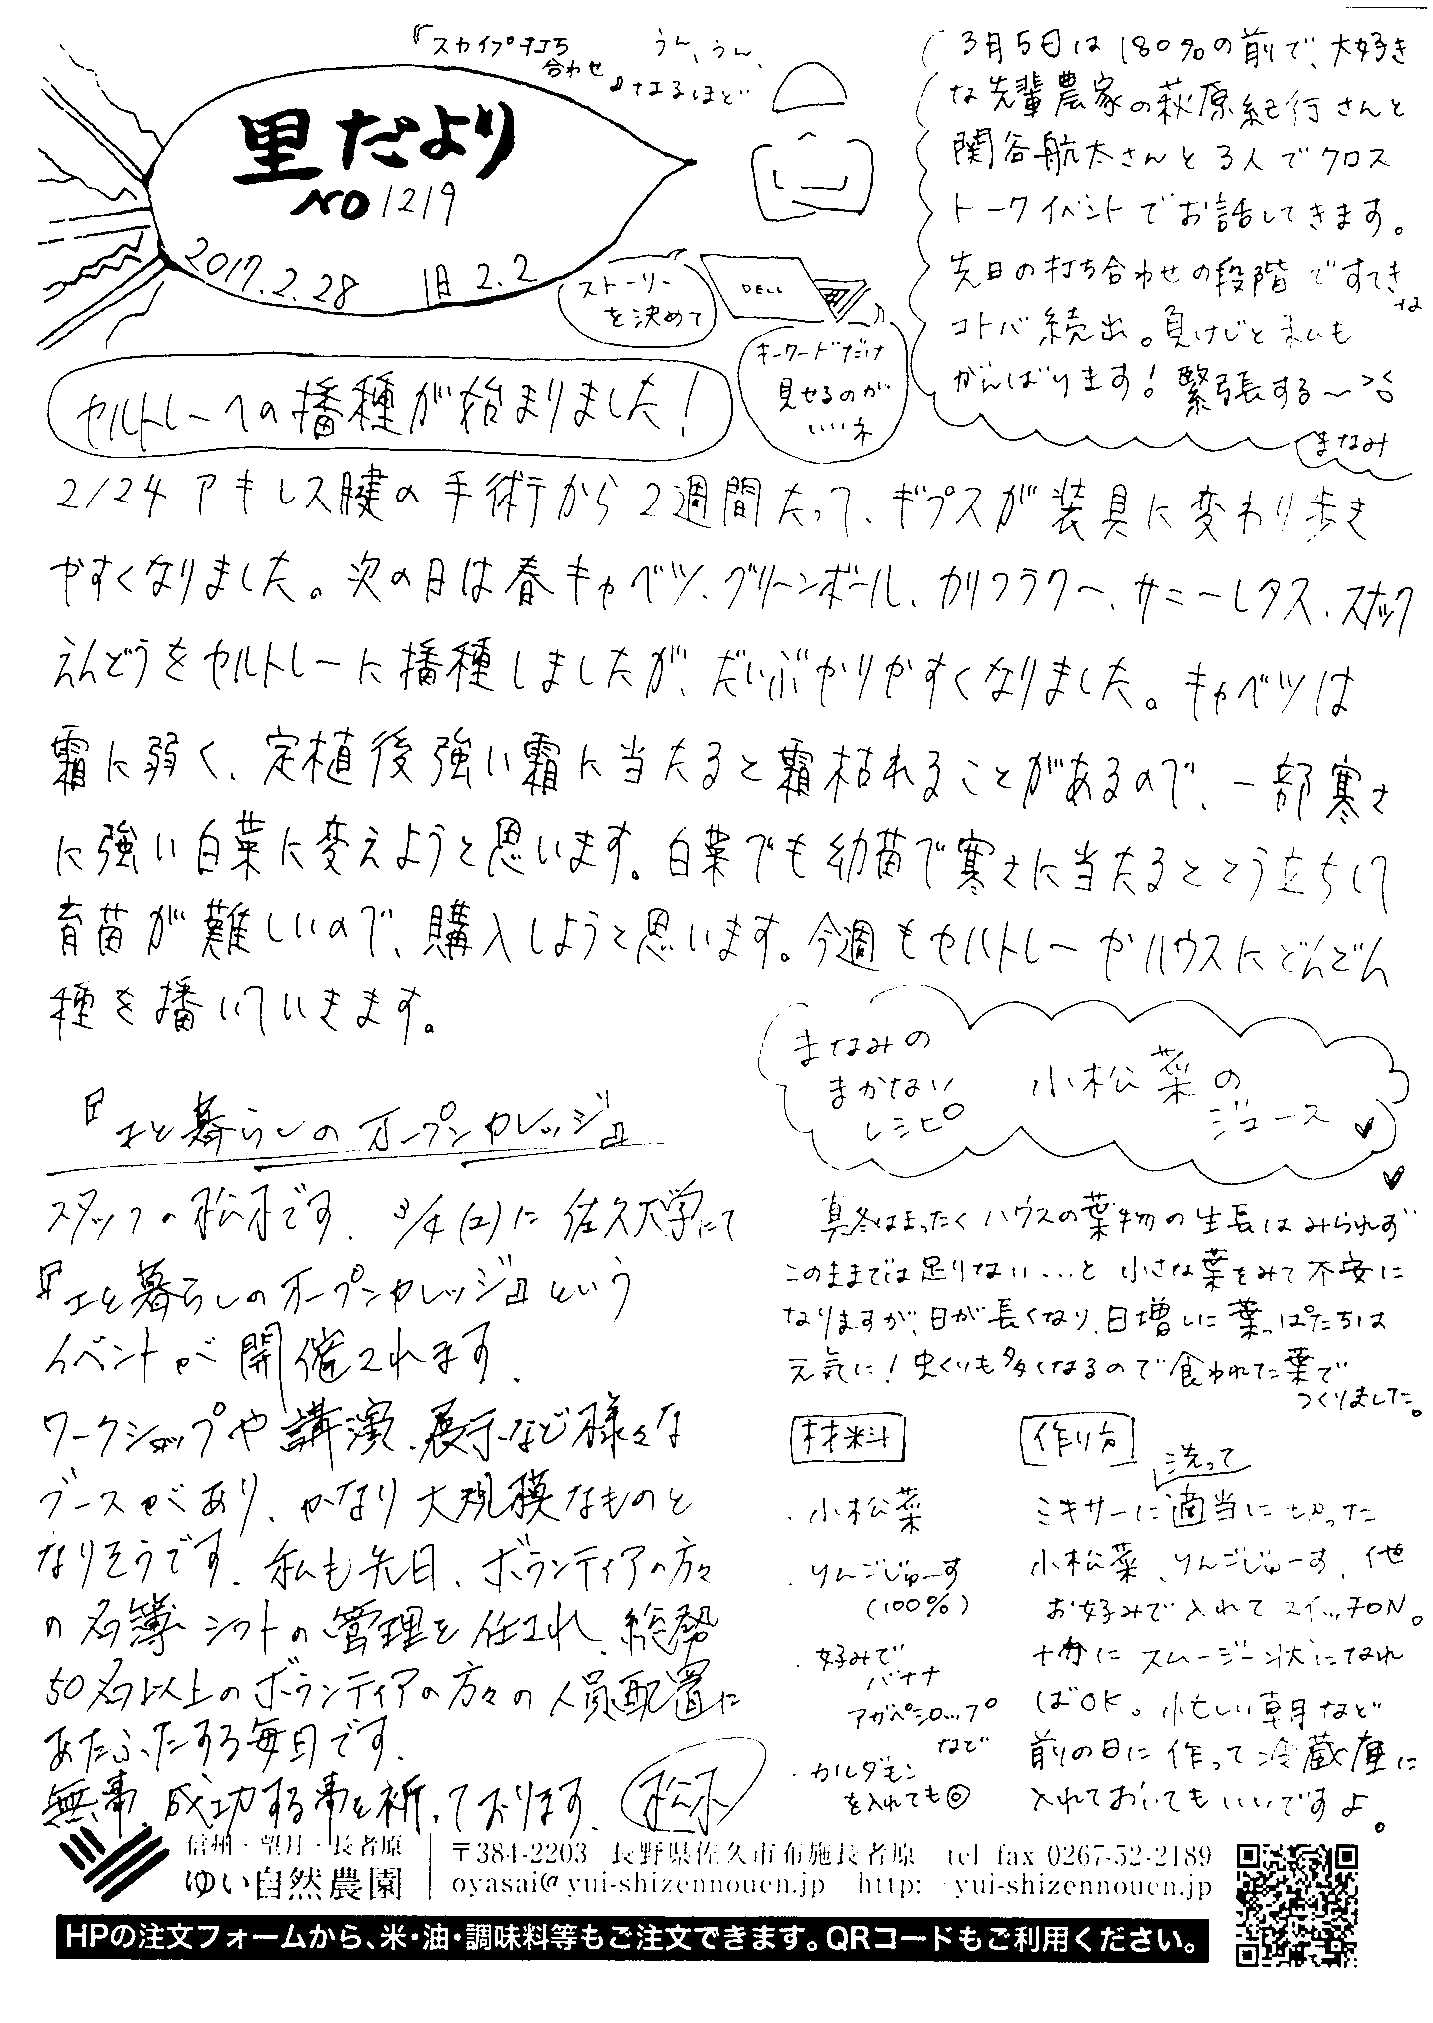 里だより
NO 1219
2017.2.28 旧2.2
『スカイプ打ち
合わせ』
うん、うん、
なるほど
ストーリー
を決めて
DELL
キーワードだけ
見せるのが
いいネ
3月5日は180%の前で、大好き
な先輩農家の萩原紀行さんと
関谷航太さんと3人でクロス
トークイベントでお話してきます。
先日の打ち合わせの段階ですてきな
コトバ続出。負けじと私も
がんばります!緊張する〜><
まなみ
セルトレーへの播種が始まりました!
2/24 アキレス腱の手術から2週間たって、ギプスが装具に変わり歩き
やすくなりました。次の日は春キャベツ、グリーンボール、カリフラワー、サニーレタス、スナック
えんどうをセルトレーに播種しましたが、だいぶやりやすくなりました。キャベツは
霜に弱く、定植後強い霜に当たると霜枯れることがあるので、一部寒さ
に強い白菜に変えようと思います。白菜でも幼苗で寒さに当たるととう立ちして
育苗が難しいので、購入しようと思います。今週もセルトレーやハウスにどんどん
種を播いていきます。
『エと暮らしのオープンカレッジ』
スタッフの松本です. 3/4(土)に佐久大学にて
『エと暮らしのオープンカレッジ』という
イベントが開催されます.
ワークショップや講演、展示など様々な
ブースがあり、かなり大規模なものと
なりそうです. 私も先日、ボランティアの方々
の名簿、シフトの管理を任され、総勢
50名以上のボランティアの方々の人員配置に
あたふたする毎日です.
無事、成功する事を祈っております. 松本
まなみの
まかない
レシピ
小松菜の
ジュース
真冬はまったくハウスの葉物の生長はみられず
このままでは足りない…と小さな葉をみて不安に
なりますが、日が長くなり、日増しに葉っぱたちは
元気に!虫くいも多くなるので食われた葉で
つくりました。
材料
・小松菜
・りんごじゅーす
(100%)
・好みで
バナナ
アガベシロップ
など
・カルダモン
を入れても◎
作り方
洗って
ミキサーに適当に切った
小松菜、りんごじゅーす、他
お好みで入れてスイッチON。
十分にスムージー状になれ
ばOK。忙しい朝など
前の日に作って冷蔵庫に
入れておいてもいいですよ。
信州・望月・長者原
ゆい自然農園
〒384-2203 長野県佐久市布施長者原 tel fax 0267-52-2189
oyasai@yui-shizennouen.jp http: yui-shizennouen.jp
HPの注文フォームから、米・油・調味料等もご注文できます。QRコードもご利用ください。